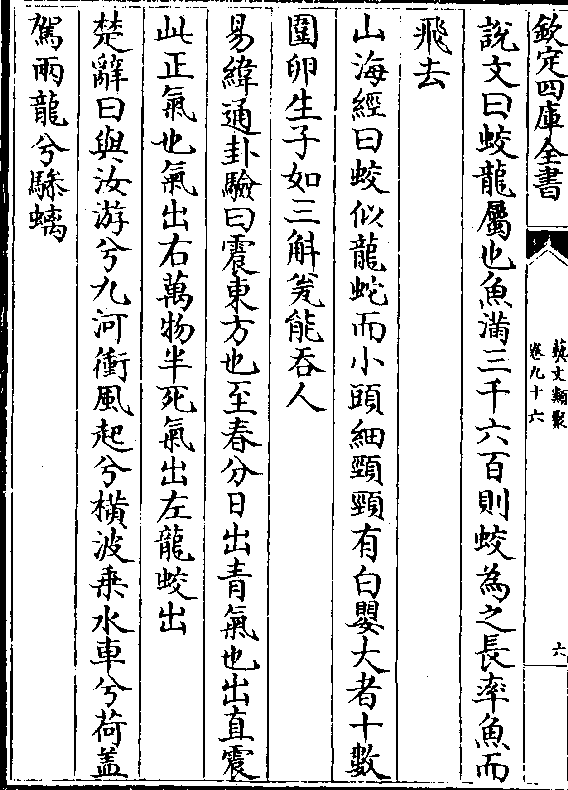 欽定四庫全書
藝文類聚
卷九十六
六
說文曰蛟龍屬也魚滿三千六百則蛟為之長率魚而
飛去
山海經曰蛟似龍蛇而小頭細頸頸有白嬰大者十數
圍卵生子如三斛瓮能吞人
易緯通卦驗曰震東方也至春分日出青氣也出直震
此正氣也氣出右萬物半死氣出左龍蛟出
楚辭曰與汝游兮九河衝風起兮橫波乗水車兮荷盖
駕兩龍兮驂螭